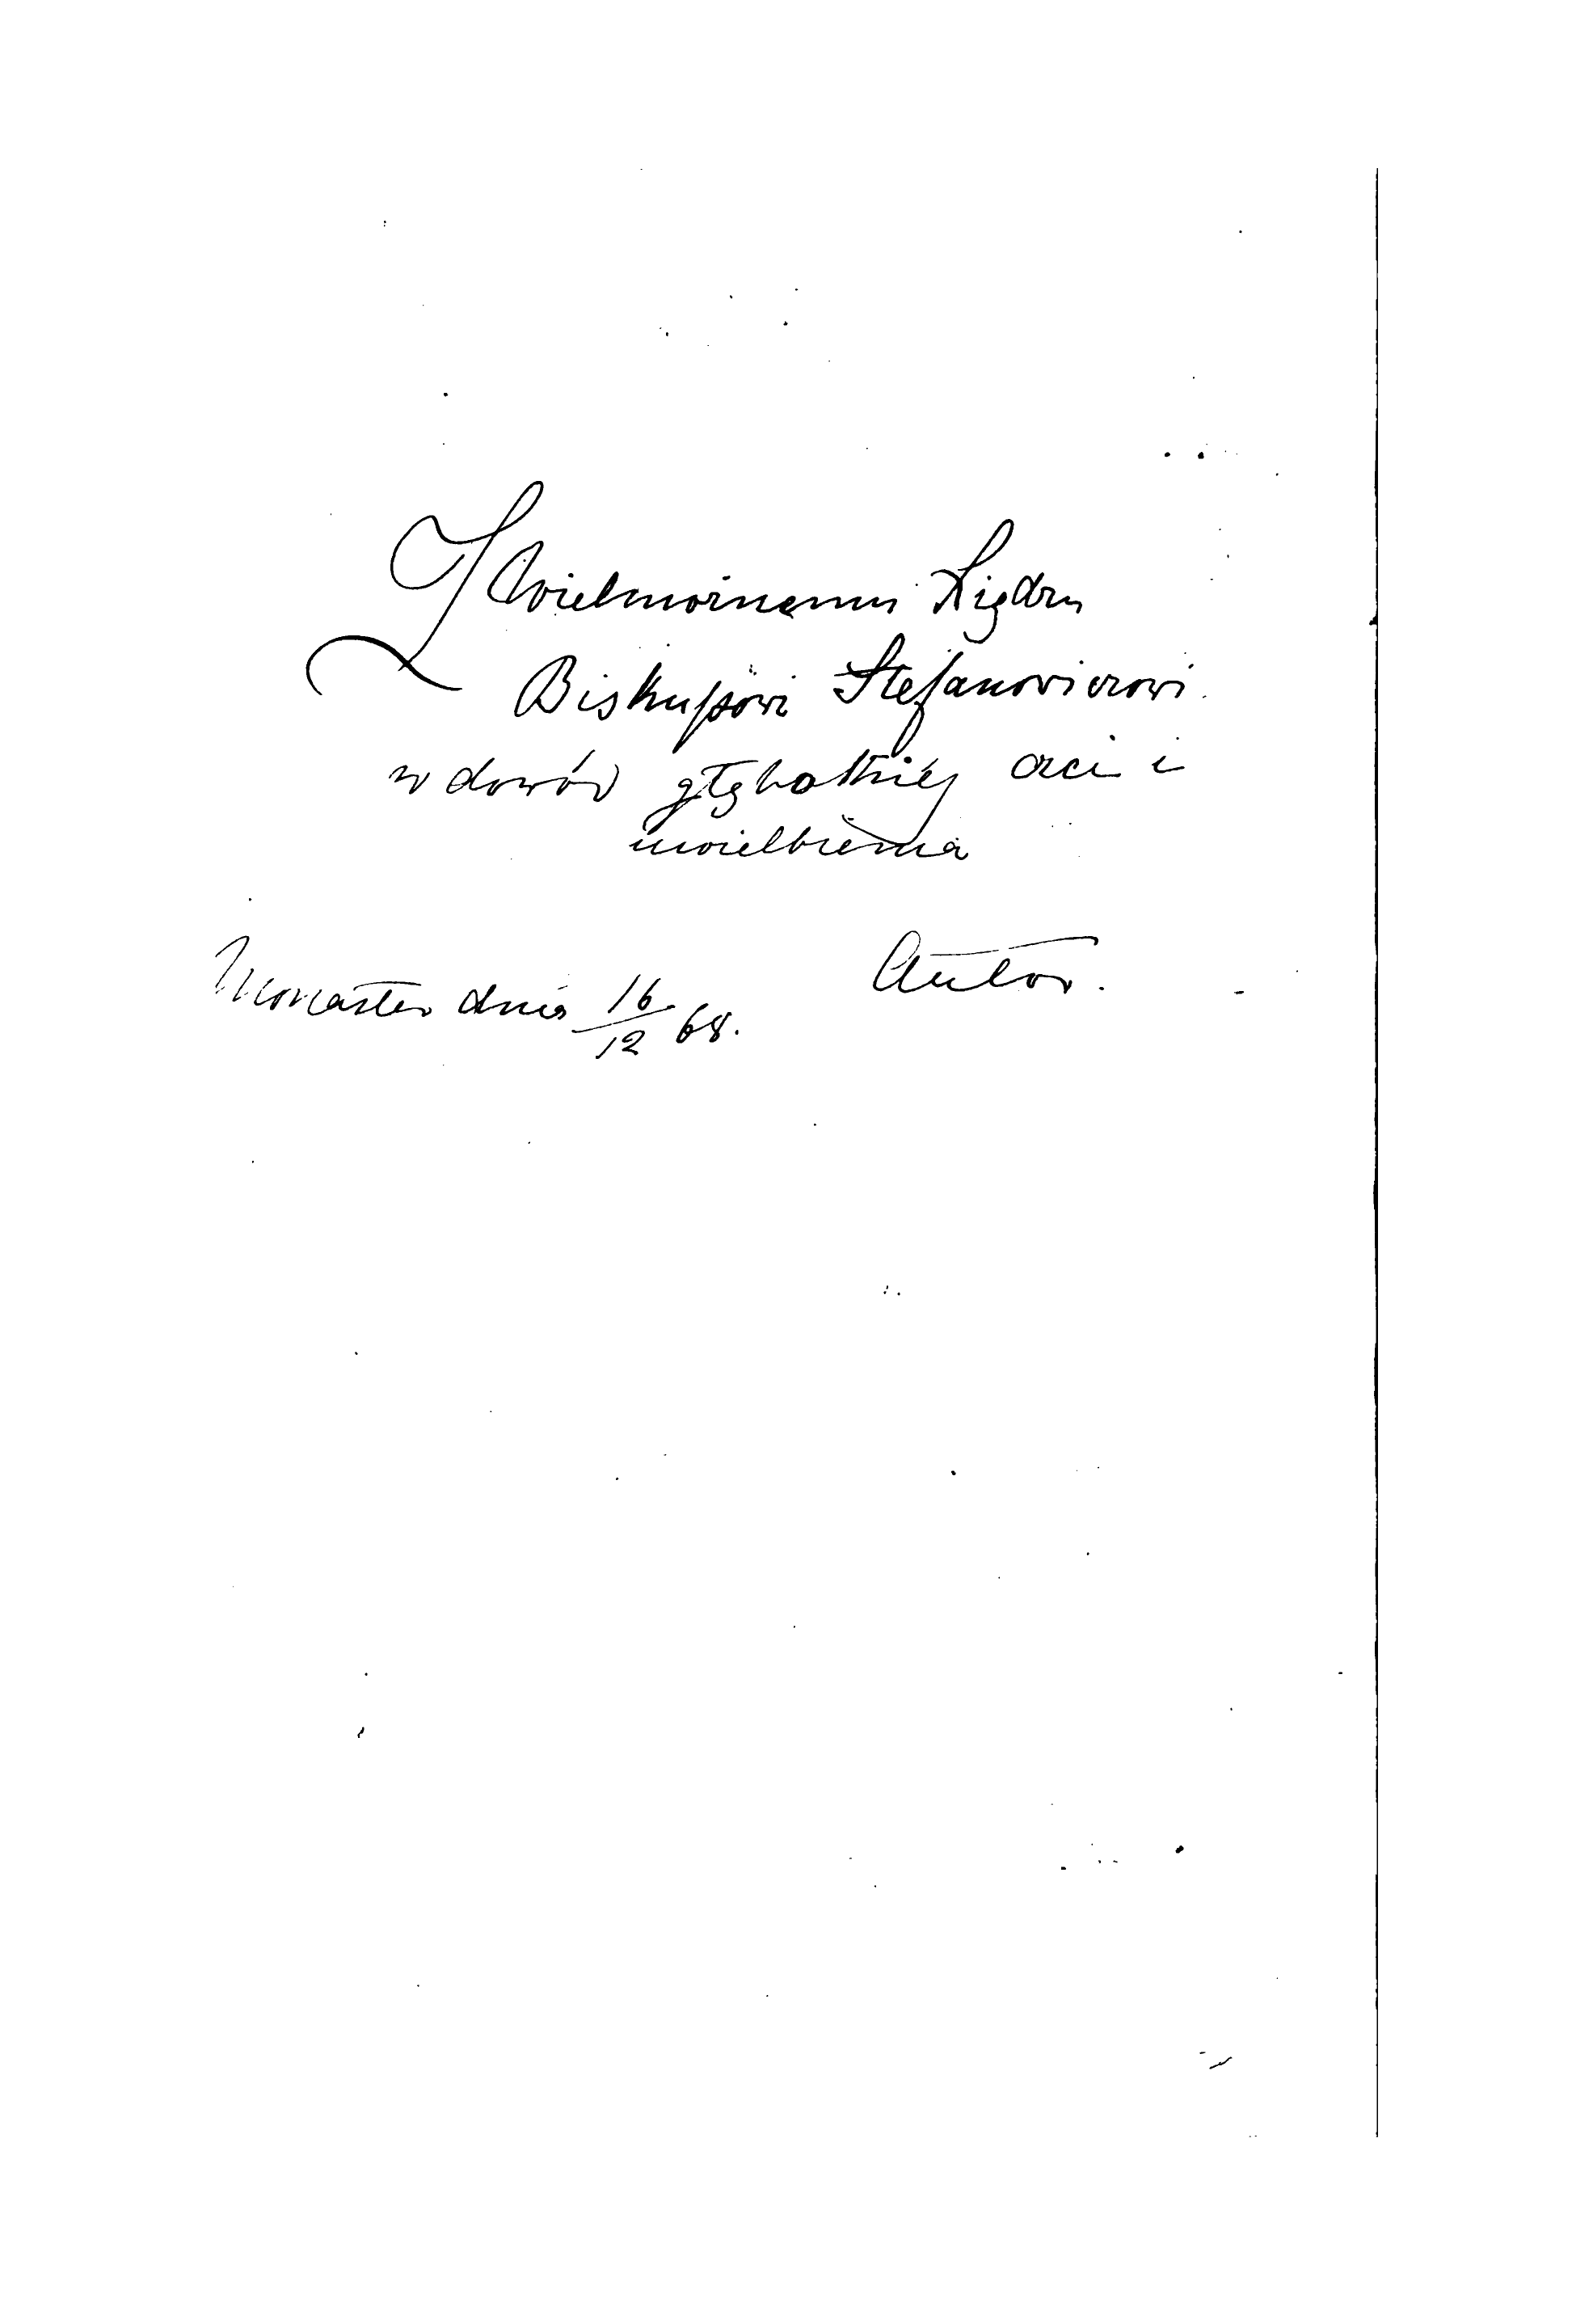 JWielmożnemu Xiędzu
Biskupowi Stefanowiczowi
w dowód głębokiéj czci i
uwielbienia
Autor.
Monaster dnia 16/12 68.